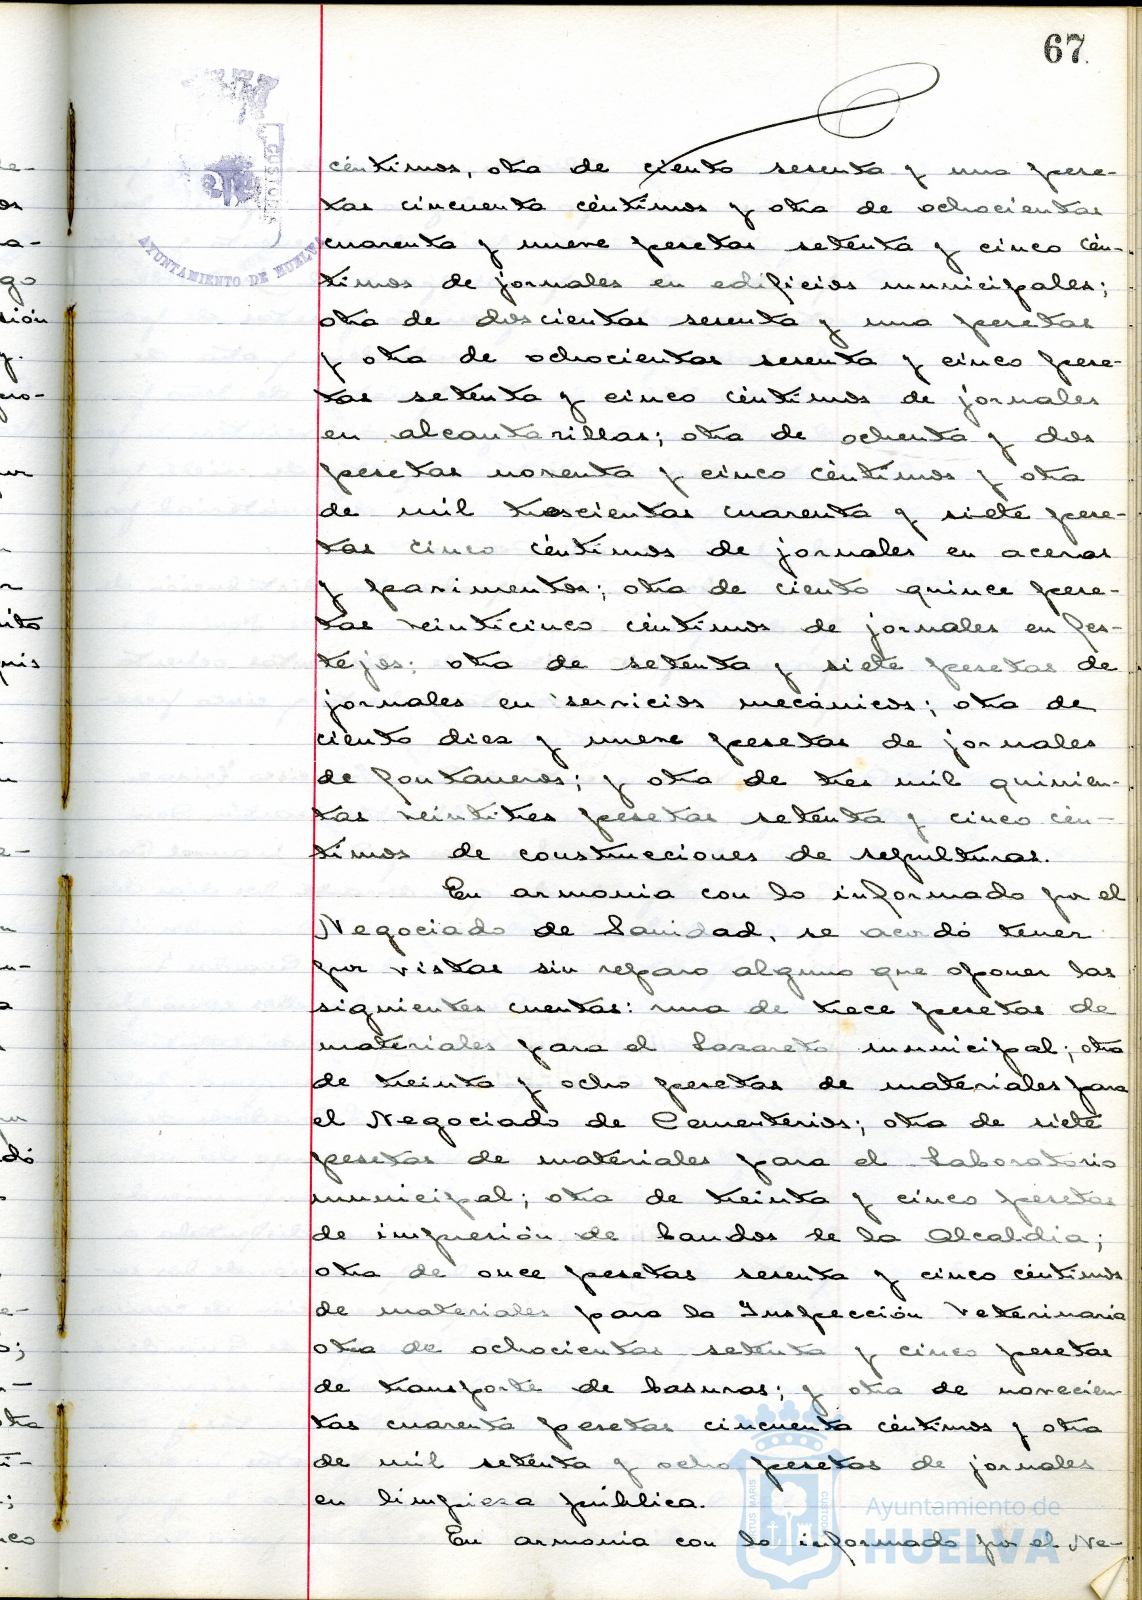 67
céntimos, otra de ciento sesenta y una pese-
tas cincuenta céntimos y otra de ochocientas
cuarenta y nueve pesetas setenta y cinco cén-
timos de jornales en edificios municipales;
otra de doscientas sesenta y una pesetas
y otra de ochocientas sesenta y cinco pese-
tas setenta y cinco céntimos de jornales
en alcantarillas; otra de ochenta y dos
pesetas noventa y cinco céntimos y otra
de mil trescientas cuarenta y siete pese-
tas cinco céntimos de jornales en aceras
y pavimentos; otra de ciento quince pese-
tas veinticinco céntimos de jornales en fes-
tejos; otra de setenta y siete pesetas de
jornales en servicios mecánicos; otra de
ciento diez y nueve pesetas de jornales
de fontaneros; y otra de tres mil quinien-
tas veintitres pesetas setenta y cinco cén-
timos de construcciones de sepulturas.
En armonia con lo informado por el
Negociado de Sanidad, se acordó tener
por vistas sin reparo alguno que oponer las
siguientes cuentas: una de trece pesetas de
materiales para el Lazareto municipal; otra
de treinta y ocho pesetas de materiales para
el Negociado de Cementerios; otra de siete
pesetas de materiales para el Laboratorio
municipal; otra de treinta y cinco pesetas
de impresión de bandos de la Alcaldia;
otra de once pesetas sesenta y cinco céntimos
de materiales para la Inspección Veterinaria
otra de ochocientas setenta y cinco pesetas
de transporte de basuras; y otra de novecien-
tas cuarenta pesetas cincuenta céntimos y otra
de mil setenta y ocho pesetas de jornales
en limpieza pública.
En armonia con lo informado por el Ne-
AYUNTAMIENTO DE HUELVA
Ayuntamiento de
HUELVA